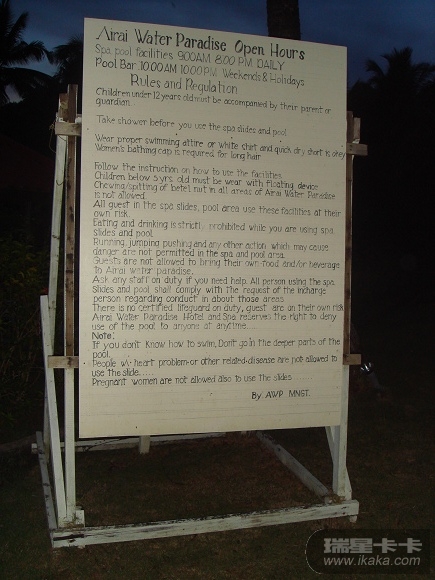 Airai Water Paradise Open Hours
Spa, pool facilities 9:00AM 8:00 PM DAILY
Pool Bar 10:00 AM 10:00 PM Weekends & Holidays
Rules and Regulation
Children under 12 years old must be accompanied by their parent or
guardian.
Take shower before you use the spa slides and pool.
Wear proper swimming attire or white shirt and quick dry short is okey
Women's bathing cap is required for long hair
Follow the instruction on how to use the facilities.
Children below 5 yrs. old must be wear with floating device
Chewing/spitting of betel nut in all areas of Airai Water Paradise
is not allowed.
All guest in the spa slides, pool area use these facilities at their
own risk.
Eating and drinking is strictly prohibited while you are using spa
slides and pool.
Running, jumping pushing and any other action which may cause
danger are not permitted in the spa and pool area.
Guests are not allowed to bring their own food and/or beverage
to Airai water paradise.
Ask any staff on duty if you need help. All person using the spa
Slides and pool shall comply with the request of the incharge
person regarding conduct in about those areas
There is no certified lifeguard on duty, guest are on their own risk
Airai Water Paradise Hotel and Spa reserves the right to deny
use of the pool to anyone at anytime....
Note:
If you don't Know how to swim, Don't go in the deeper parts of the
pool.
People w/ heart problem or other related disease are not allowed to
use the slide.....
Pregnant women are not allowed also to use the slides
By. AWP MNGT.
瑞星卡卡
www.ikaka.com